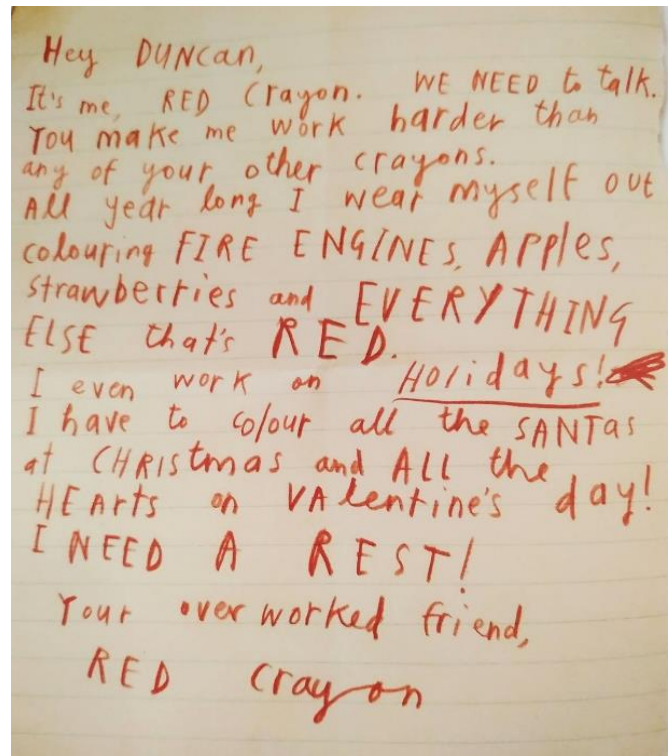 Hey DUNCan,
It's me, RED Crayon. WE NEED to talk.
You make me work harder than
any of your other crayons.
All year long I wear myself out
colouring FIRE ENGINES, Apples,
strawberries and EVERYTHING
ELSE that's RED.
I even work on Holidays!
I have to colour all the SANTas
at CHRIStmas and All the
HEArts on VAlentine's day!
I NEED A REST!
Your overworked friend,
RED crayon